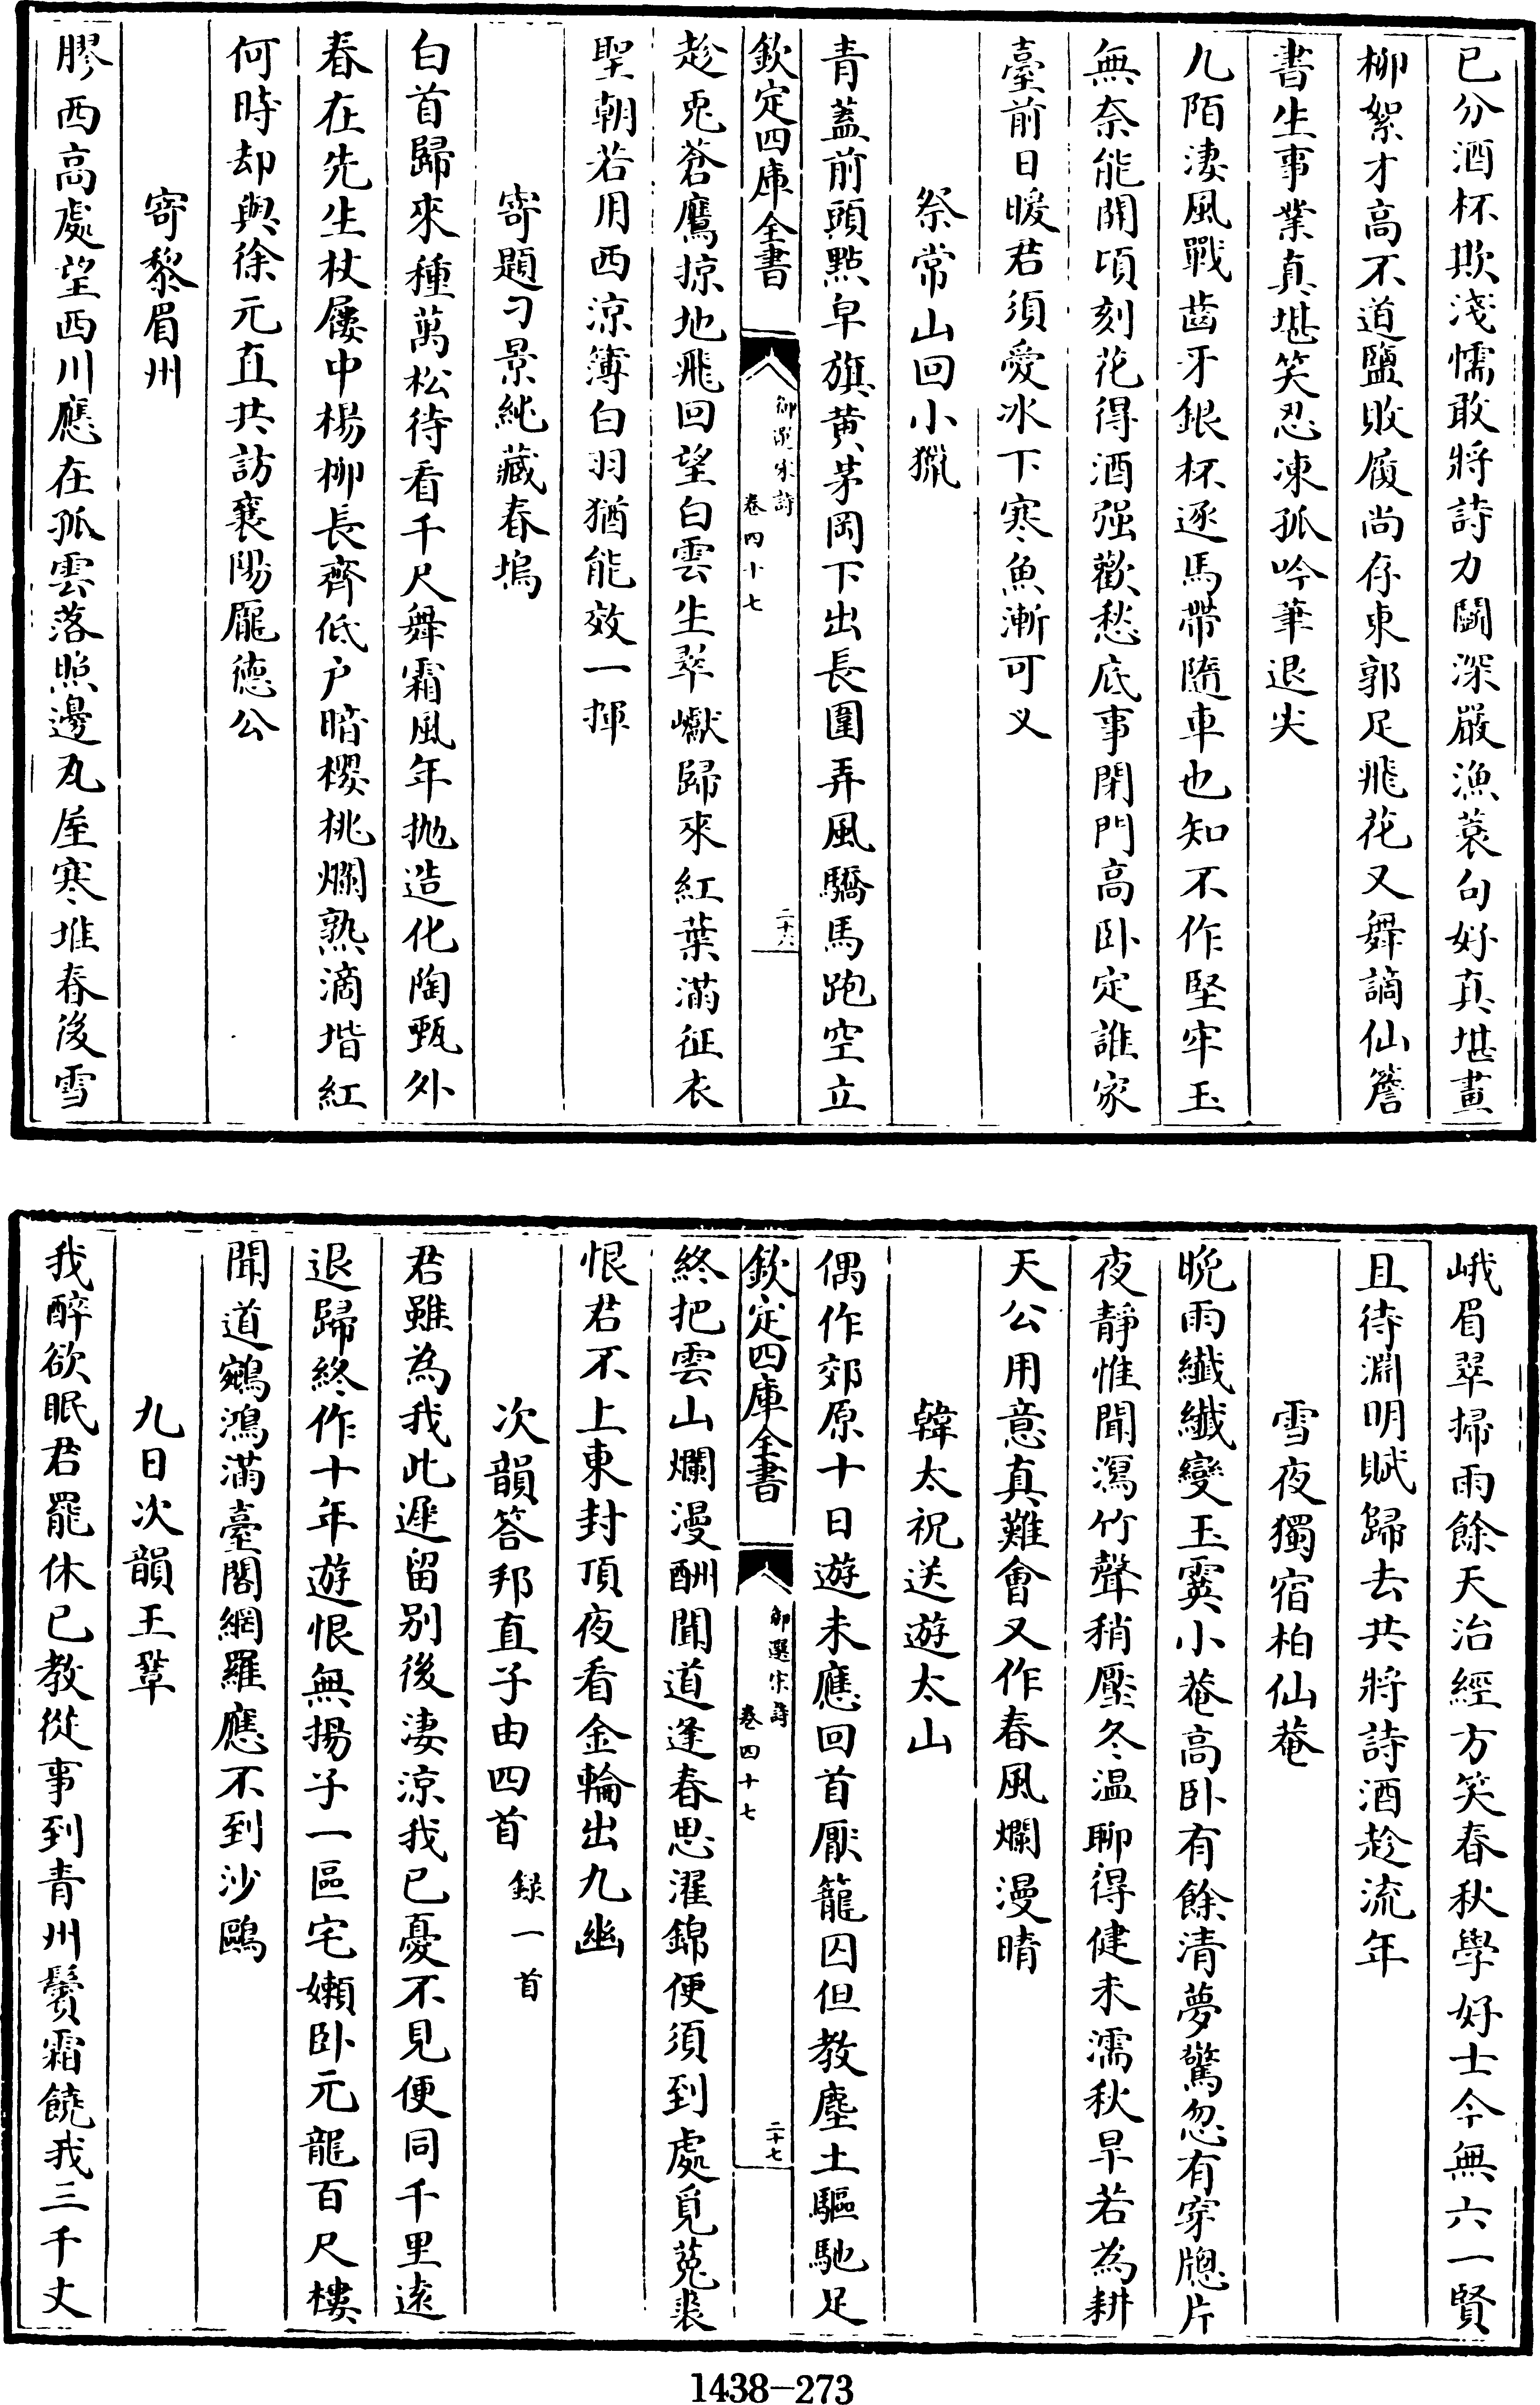 已分酒杯欺淺懦敢將詩力鬬深嚴漁蓑句好真堪畫
柳絮才高不道鹽敗履尚存東郭足飛花又舞謫仙簷
書生事業真堪笑忍凍孤吟筆退尖
九陌淒風戰齒牙銀杯逐馬帶隨車也知不作堅牢玉
無奈能開頃刻花得酒强歡愁底事閉門高卧定誰家
臺前日暖君須愛冰下寒魚漸可叉
祭常山回小獵
青蓋前頭點皁旗黄茅岡下出長圍弄風驕馬跑空立
欽定四庫全書
御選宋詩
卷四十七
二十六
趁兎蒼鷹掠地飛回望白雲生翠巘歸來紅葉滿征衣
聖朝若用西涼簿白羽猶能效一揮
寄題刁景純藏春塢
白首歸來種萬松待看千尺舞霜風年抛造化陶甄外
春在先生杖屨中楊柳長齊低户暗櫻桃爛熟滴堦紅
何時却與徐元直共訪襄陽龎徳公
寄黎眉州
膠西高處望西川應在孤雲落照邊瓦屋寒堆春後雪
峨眉翠掃雨餘天治經方笑春秋學好士今無六一賢
且待淵明賦歸去共將詩酒趁流年
雪夜獨宿柏仙菴
晚雨纖纖變玉霙小菴高卧有餘清夢驚忽有穿牕片
夜靜惟聞瀉竹聲稍壓冬溫聊得健未濡秋旱若為耕
天公用意真難會又作春風爛漫晴
韓太祝送遊太山
偶作郊原十日遊未應回首厭籠囚但教塵土驅馳足
欽定四庫全書
御選宋詩
卷四十七
二十七
終把雲山爛漫酬聞道逢春思濯錦便須到處覓菟裘
恨君不上東封頂夜看金輪出九幽
次韻答邦直子由四首 録一首
君雖為我此遲留别後淒涼我已憂不見便同千里遠
退歸終作十年遊恨無揚子一區宅嬾卧元龍百尺樓
聞道鵷鴻滿臺閣網羅應不到沙鷗
九日次韻王鞏
我醉欲眠君罷休已教從事到青州鬢霜饒我三千丈
1438-273